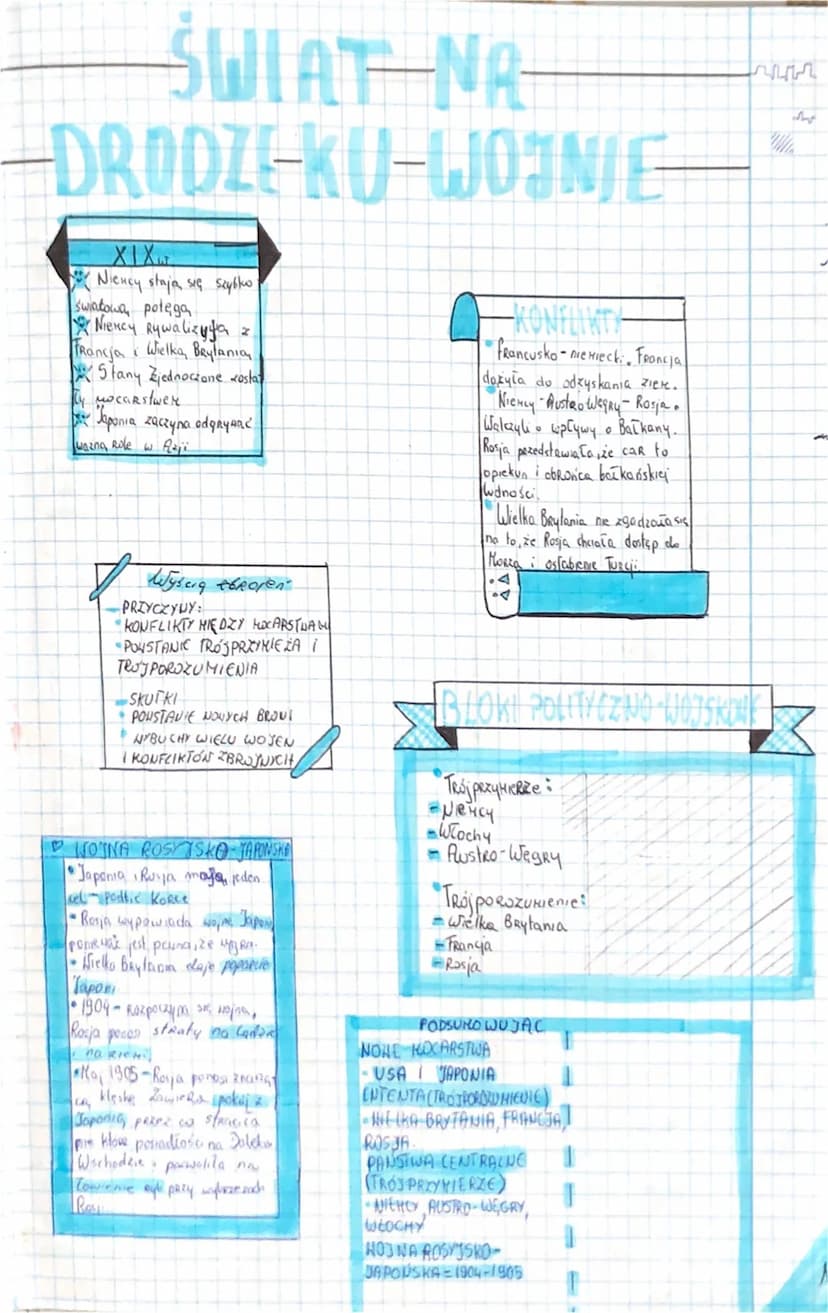 ŚWIAT NA
DRODZE KU WOJNIE
XIX w
Niemcy stają się szybko
światową potęgą
Niemcy Rywalizują z
Francją i Wielką Brytanią
Stany Zjednoczone zosta
ły mocarstwem
Japonia zaczyna odgrywać
ważną Rolę w Azji
KONFLIKTY
Francusko-niemiecki. Francja
dążyła do odzyskania ziem.
Niemcy-AustroWęgry-Rosja.
Walczyli o wpływy o Bałkany.
Rosja przedstawiała, że car to
opiekun i obrońca bałkańskiej
ludności.
Wielka Brytania nie zgadzała się
na to, że Rosja chciała dostęp do
Morza i osłabienie Turcji.
Wyścig zbrojeń
- PRZYCZYNY:
• KONFLIKTY MIĘDZY MOCARSTWAMI
• POWSTANIE TRÓJPRZYMIEŻA I
TRÓJPOROZUMIENIA
- SKUTKI
• POWSTANIE NOWYCH BRONI
• WYBUCHY WIELU WOJEN
I KONFLIKTÓW ZBROJNYCH
BLOKI POLITYCZNO-WOJSKOWE
• Trójprzymierze:
- Niemcy
- Włochy
- Austro-Węgry
• Trójporozumienie:
- Wielka Brytania
- Francja
- Rosja
WOJNA ROSYJSKO-JAPOŃSKA
• Japonia i Rosja mają jeden
cel - podbić Koreę
• Rosja wypowiada wojnę Japonii
ponieważ jest pewna, że wygra.
• Wielka Brytania daje poparcie
Japonii
• 1904 - rozpoczyna się wojna,
Rosja ponosi straty na lądzie
i na ziemi
• Maj 1905 - Rosja ponosi znaczą
cą klęskę. Zawiera pokój z
Japonią przez co straciła
posiadłości na Daleko
Wschodzie i pozwoliła na
łowienie ryb przy wybrzeżach
Rosji
PODSUMOWUJĄC
NOWE MOCARSTWA
- USA I JAPONIA
ENTENTA (TRÓJPOROZUMIENIE)
- WIELKA BRYTANIA, FRANCJA,
ROSJA.
PAŃSTWA CENTRALNE
(TRÓJPRZYMIERZE)
- NIEMCY, AUSTRO-WĘGRY,
WŁOCHY
WOJNA ROSYJSKO-
JAPOŃSKA = 1904-1905